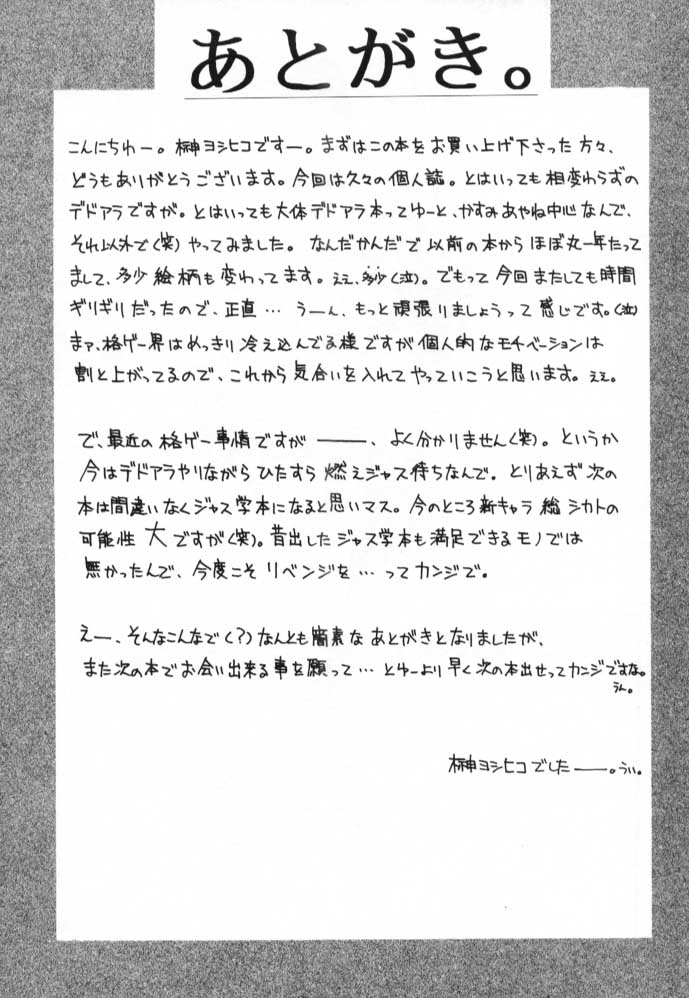 あとがき。
こんにちわー。榊ヨシヒコですー。まずはこの本をお買い上げ下さった方々、
どうもありがとうございます。今回は久々の個人誌。とはいっても相変わらずの
デドアラですが。とはいっても大体デドアラ本ってゆーと、かすみあやね中心なんで、
それ以外で(笑)やってみました。なんだかんだで以前の本からほぼ丸一年たって
まして、多少絵柄も変わってます。ええ、多少(泣)。でもって今回またしても時間
ギリギリだったので、正直…うーん、もっと頑張りましょうって感じです。(泣)
まァ、格ゲー界はめっきり冷え込んでる様ですが個人的なモチベーションは
割と上がってるので、これから気合いを入れてやっていこうと思います。ええ。
で、最近の格ゲー事情ですが――、よく分かりません(笑)。というか
今はデドアラやりながらひたすら燃えジャス待ちなんで。とりあえず次の
本は間違いなくジャス学本になると思いマス。今のところ新キャラ総シカトの
可能性大ですが(笑)。昔出したジャス学本も満足できるモノでは
無かったんで、今度こそリベンジを…ってカンジで。
えー、そんなこんなで(?)なんとも簡素なあとがきとなりましたが、
また次の本でお会い出来る事を願って…とゆーより早く次の本出せってカンジですな。
うん。
榊ヨシヒコでした――。うぃ。